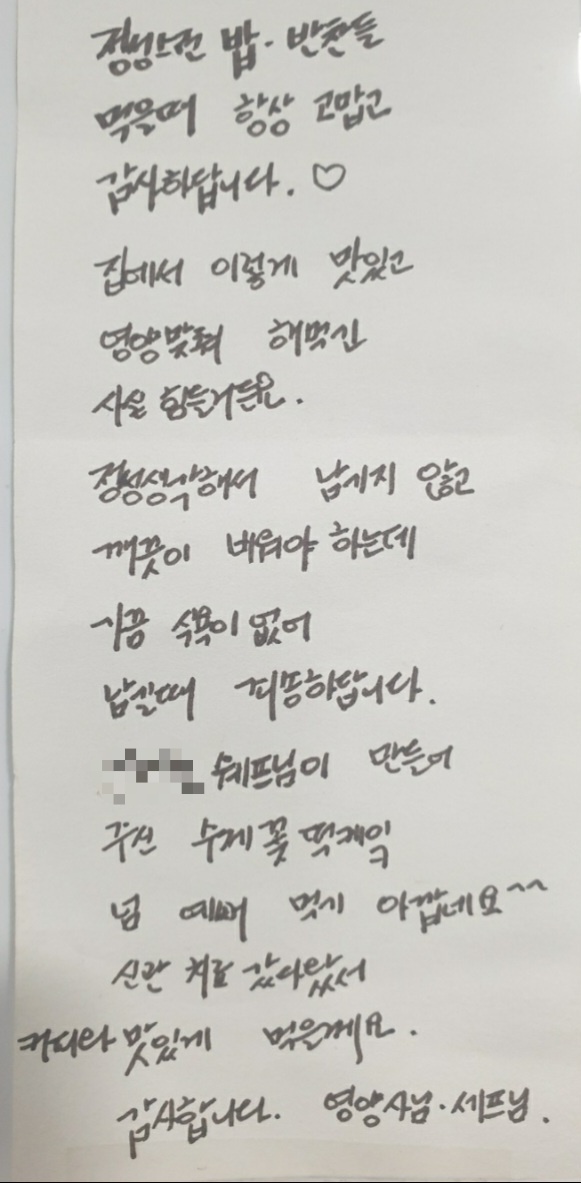 정성스런 밥·반찬들
먹을때 항상 고맙고
감사하답니다. ♡
집에서 이렇게 맛있고
영양맞춰 해먹긴
사실 힘들거든요.
정성생각해서 남기지 않고
깨끗이 비워야 하는데
가끔 식욕이 없어
남길때 죄송하답니다.
쉐프님이 만들어
주신 수제 꽃 떡케익
넘 예뻐 먹기 아깝네요^^
신관 치료 갔다왔서
커피와 맛있게 먹을께요.
감사합니다. 영양사님·세프님.